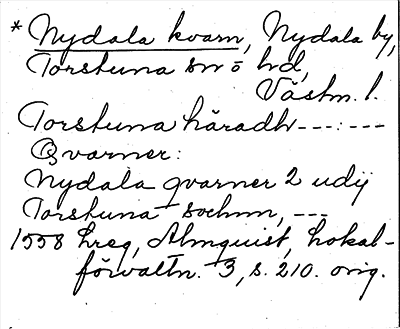 * Nydala kvarn, Nydala by,
Torstuna sn o hd,
Västm. l.
Torstuna häradh ---:---
Qvarner:
Nydala qvarner 2 udij
Torstuna sochnn, ---
1558 hreg, Almquist, Lokal-
förvaltn. 3, s. 210. orig.